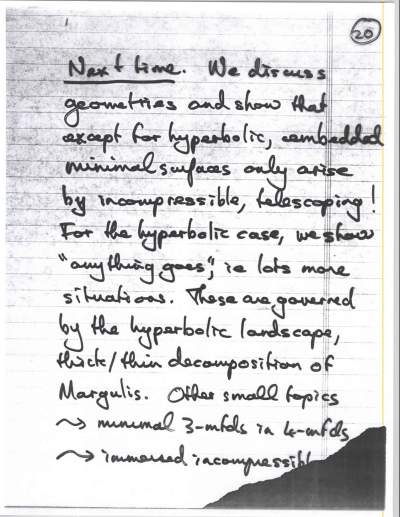 20
Next time. We discuss
geometries and show that
except for hyperbolic, embedded
minimal surfaces only arise
by incompressible, telescoping!
For the hyperbolic case, we show
"anything goes", ie lots more
situations. These are governed
by the hyperbolic landscape,
thick/thin decomposition of
Margulis. Other small topics
⇝ minimal 3-mfds in 4-mfds
⇝ immersed incompressibl